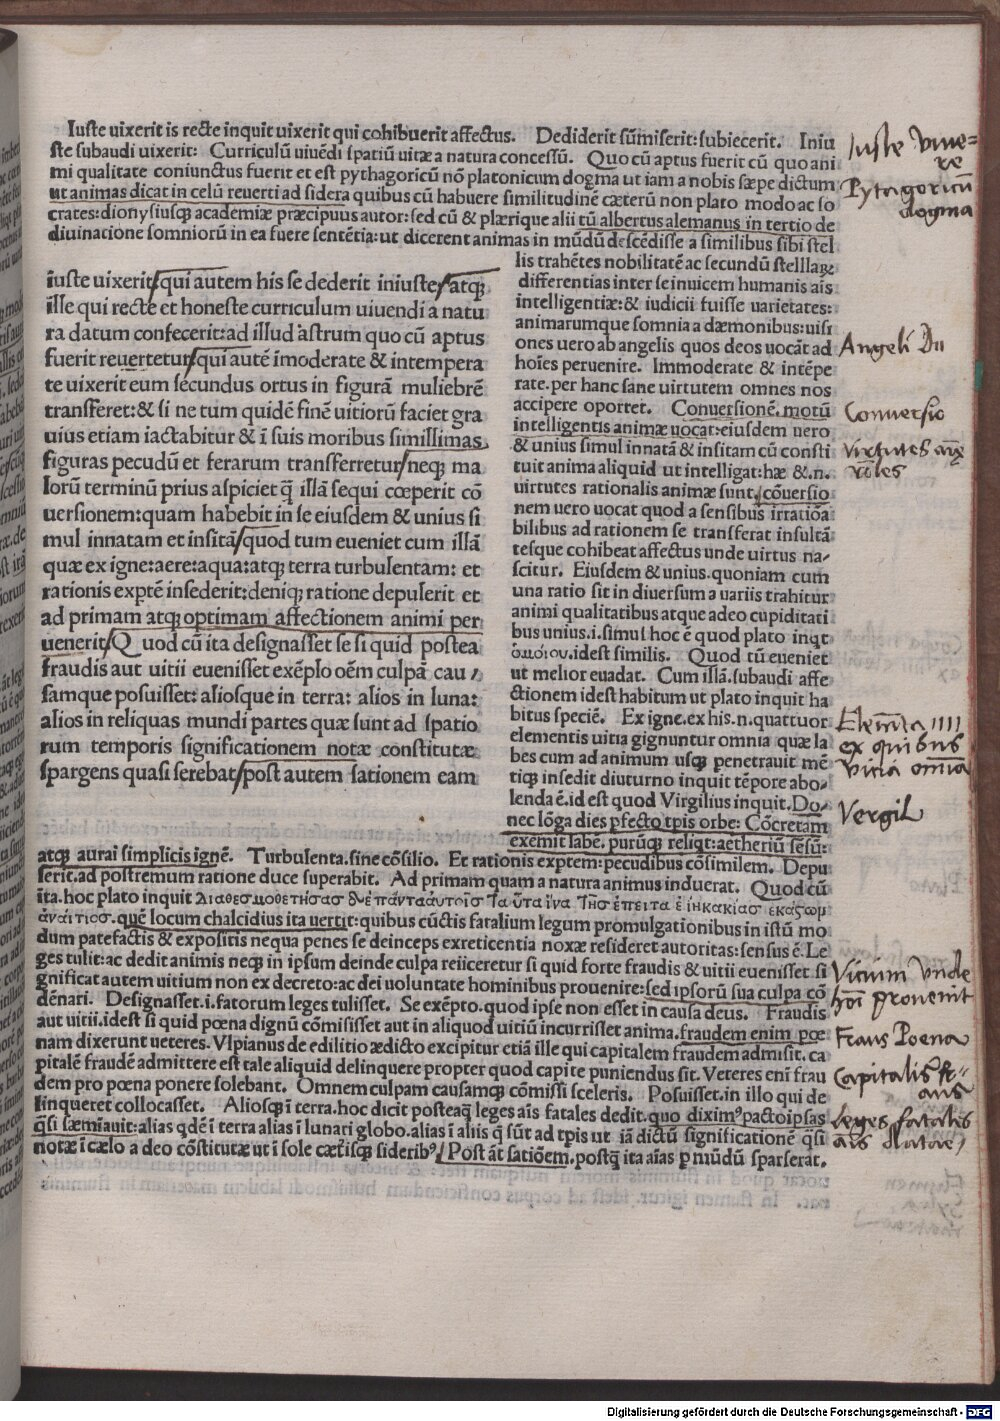 Iuste uixerit is recte inquit uixerit qui cohibuerit affectus. Dediderit sūmiserit:subiecerit. Iniu
ste subaudi uixerit: Curriculū uiuēdi spatiū uitæ a natura concessū. Quo cū aptus fuerit cū quo ani
mi qualitate coniunctus fuerit et est pythagoricū nō platonicum dogma ut iam a nobis sæpe dictum
ut animas dicat in celū reuerti ad sidera quibus cū habuere similitudinē cæterū non plato modo ac so
crates:dionysiusqꝫ academiæ præcipuus autor:sed cū & plærique alii tū albertus alemanus in tertio de
diuinacione somniorū in ea fuere sentētia:ut dicerent animas in mūdū descēdisse a similibus sibi stel
lis trahētes nobilitatē ac secundū stelllaꝝ
differentias inter se inuicem humanis aīs
intelligentiæ:& iudicii fuisse uarietates:
animarumque somnia a dæmonibus:uisi
ones uero ab angelis quos deos uocāt ad
hoīes peruenire. Immoderate & intēpe
rate.per hanc sane uirtutem omnes nos
accipere oportet. Conuersionē.motū
intelligentis animæ uocat:eiusdem uero
& unius simul innatā & insitam cū consti
tuit anima aliquid ut intelligat:hæ &.n.
uirtutes rationalis animæ sunt.cōuersio
nem uero uocat quod a sensibus irratiōa
bilibus ad rationem se transferat insultā
tesque cohibeat affectus unde uirtus na-
scitur. Eiusdem & unius.quoniam cum
una ratio sit in diuersum a uariis trahitur
animi qualitatibus atque adeo cupiditati
bus unius.i.simul hoc ē quod plato inqt
ὁμοίου.idest similis. Quod tū eueniet
ut melior euadat. Cum illā.subaudi affe
ctionem idest habitum ut plato inquit ha
bitus speciē. Ex igne.ex his.n.quattuor
elementis uitia gignuntur omnia quæ la
bes cum ad animum usqꝫ penetrauit mē
tiqꝫ insedit diuturno inquit tēpore abo-
lenda ē.id est quod Virgilius inquit.Do-
nec lōga dies pfecto tpis orbe: Cōcretam
exemit labē.purūqꝫ reliqt:aetheriū sēsū:
iuste uixerit/qui autem his se dederit iniuste/atqꝫ
ille qui recte et honeste curriculum uiuendi a natu
ra datum confecerit:ad illud astrum quo cū aptus
fuerit reuertetur/qui autē īmoderate & intempera
te uixerit eum secundus ortus in figurā muliebrē
transferet:& si ne tum quidē finē uitiorū faciet gra
uius etiam iactabitur & ī suis moribus simillimas
figuras pecudū et ferarum transferretur/neqꝫ ma
lorū terminū prius aspiciet q̄ illā sequi cœperit cō
uersionem:quam habebit in se eiusdem & unius si
mul innatam et insitā/quod tum eueniet cum illā
quæ ex igne:aere:aqua:atqꝫ terra turbulentam: et
rationis exptē insederit:deniqꝫ ratione depulerit et
ad primam atqꝫ optimam affectionem animi per
uenerit/Q uod cū ita designasset se si quid postea
fraudis aut uitii euenisset exēplo oēm culpā cau /
samque posuisset: aliosque in terra: alios in luna:
alios in reliquas mundi partes quæ sunt ad spatio
rum temporis significationem notæ constitutæ
spargens quasi serebat/post autem sationem eam
atqꝫ aurai simplicis ignē. Turbulenta.sine cōsilio. Et rationis exptem:pecudibus cōsimilem. Depu
serit.ad postremum ratione duce superabit. Ad primam quam a natura animus induerat. Quod cū
ita.hoc plato inquit Διαθεσμοθετήσας δὲ πάντα αυτοῖσ Τα ῦτα ἵνα Τῆσ ἔπειτα ἐίη κακίασ ἑκάςωμ
ἀναίτιος.quē locum chalcidius ita uertit:quibus cūctis fatalium legum promulgationibus in istū mo
dum patefactis & expositis nequa penes se deinceps exreticentia noxæ resideret autoritas:sensus ē. Le
ges tulit:ac dedit animis neqꝫ in ipsum deinde culpa reiiceretur si quid forte fraudis & uitii euenisset si
gnificat autem uitium non ex decreto:ac dei uoluntate hominibus prouenire:sed ipsorū sua culpa cō
dēnati. Designasset.i.fatorum leges tulisset. Se exēpto.quod ipse non esset in causa deus. Fraudis
aut uitii.idest si quid pœna dignū cōmisisset aut in aliquod uitiū incurrisset anima.fraudem enim pœ
nam dixerunt ueteres. Vlpianus de edilitio ædicto excipitur etiā ille qui capitalem fraudem admisit.ca
pitalē fraudē admittere est tale aliquid delinquere propter quod capite puniendus sit. Veteres enī frau
dem pro pœna ponere solebant. Omnem culpam causamqꝫ cōmissi sceleris. Posuisset.in illo qui de
linqueret collocasset. Aliosqꝫ ī terra.hoc dicit posteaqꝫ leges aīs fatales dedit.quo diximꝰ pacto ipsas
q̄si sæmīauit:alias qdē ī terra alias ī lunari globo.alias ī aliis q̄ sūt ad tpis ut iā dictū significationē q̄si
notæ ī cælo a deo cōstitutæ ut ī sole cæt̄isqꝫ sideribꝰ. Post āt satiōem.postq̄ ita aīas p mūdū sparserat.
Iuste viue=
re
Pytagoricū
dogma
Angeli Dii
Conuersio
Virtutes aīę
Elemēta IIII
ex quibus
vicia omnia
Vergil
Vicium Vnde
hōī prouenit
Fraus Poena
Capitalis fr=
aus
leges fatalis
aīs datae
Digitalisierung gefördert durch die Deutsche Forschungsgemeinschaft - DFG